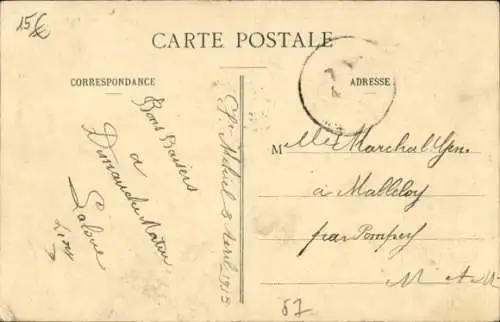 15€
CARTE POSTALE
CORRESPONDANCE
ADRESSE
Bons Baisers
a
Dimanche Matin
St Mihiel 3 Avril 1913
Mlle Marchal
à Malleloy
par Pompey
M et M
87